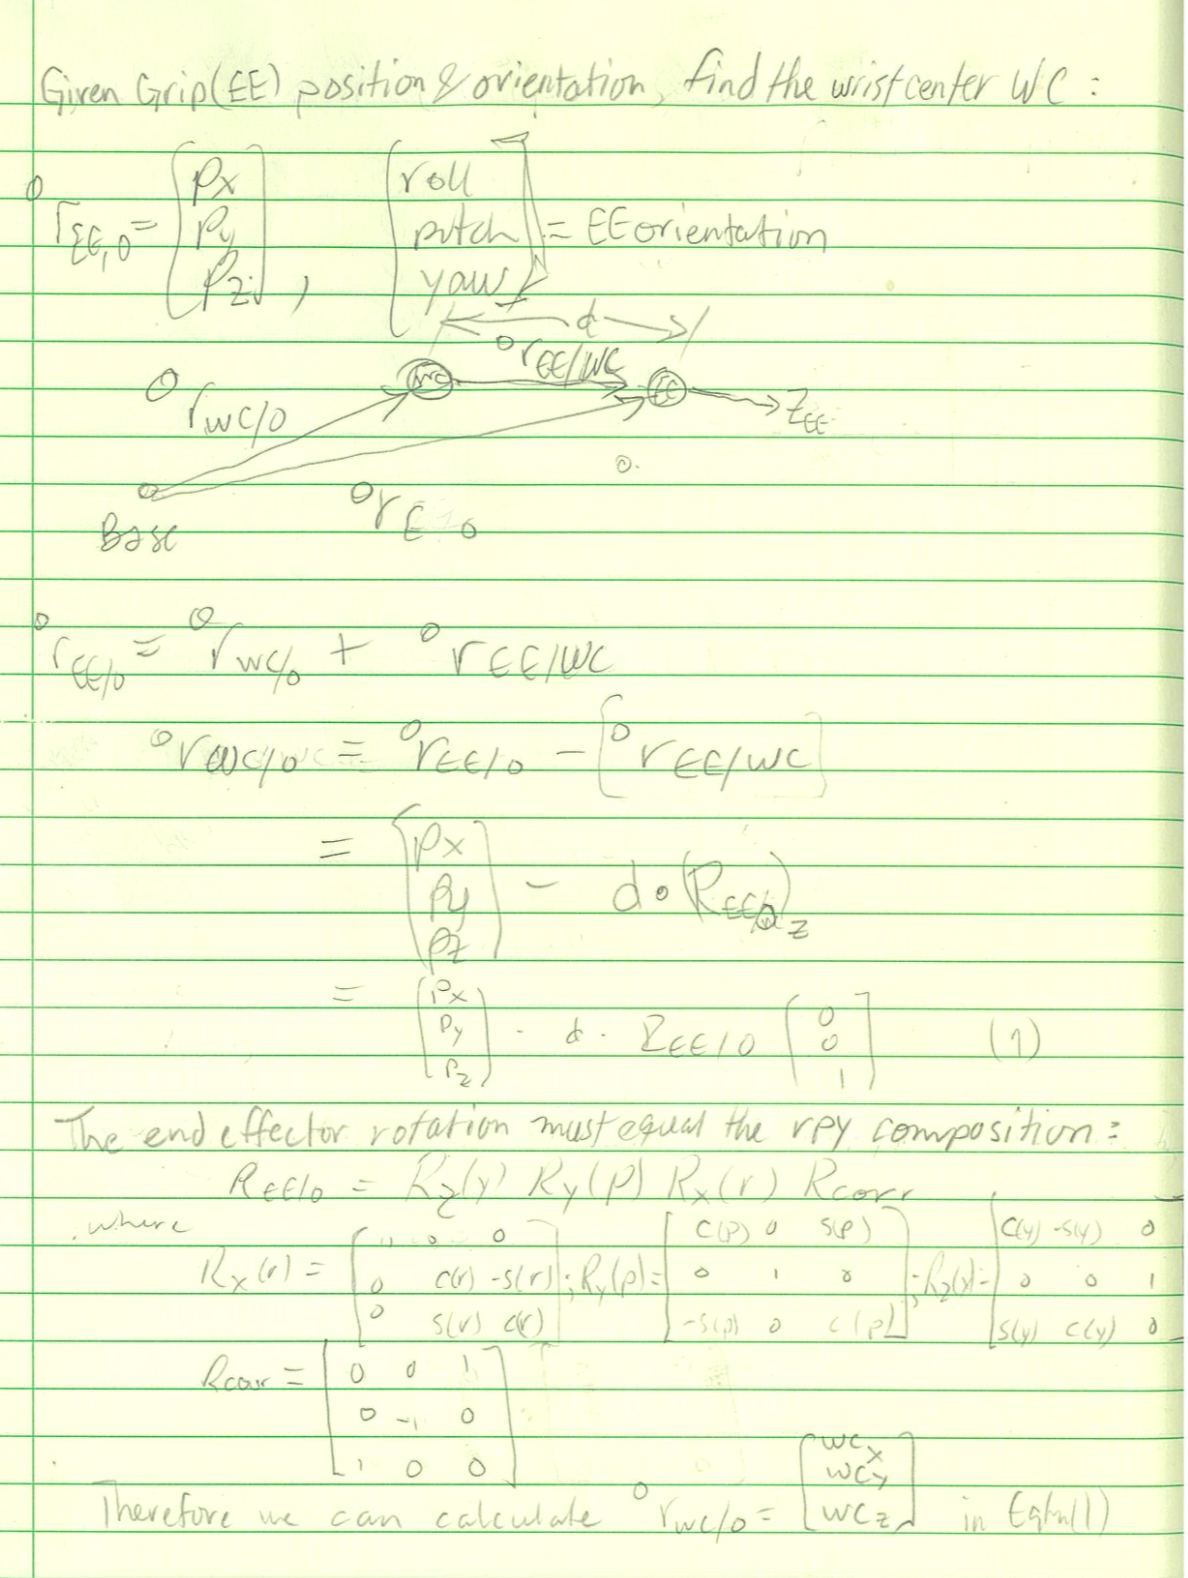 Given Grip(EE) position & orientation, find the wristcenter WC :
⁰r_EE,0 = [px py pz], [roll pitch yaw] = EE orientation
d
⁰r_EE/WC
WC EE Z_EE
⁰r_WC/0
Base ⁰r_E 0
⁰r_EE/0 = ⁰r_WC/0 + ⁰r_EE/WC
⁰r_WC/0 = ⁰r_EE/0 - [⁰r_EE/WC]
= [px py pz] - d·(R_EE/0)_z
= [px py pz] - d · R_EE/0 [0 0 1] (1)
The end effector rotation must equal the rpy composition :
R_EE/0 = Rz(y) Ry(p) Rx(r) Rcorr
where
Rx(r) = [1 0 0; 0 c(r) -s(r); 0 s(r) c(r)] ; Ry(p) = [c(p) 0 s(p); 0 1 0; -s(p) 0 c(p)] ; Rz(y) = [c(y) -s(y) 0; 0 0 1; s(y) c(y) 0
Rcorr = [0 0 1; 0 -1 0; 1 0 0]
Therefore we can calculate ⁰r_WC/0 = [WCx WCy WCz] in Eqtn(1)